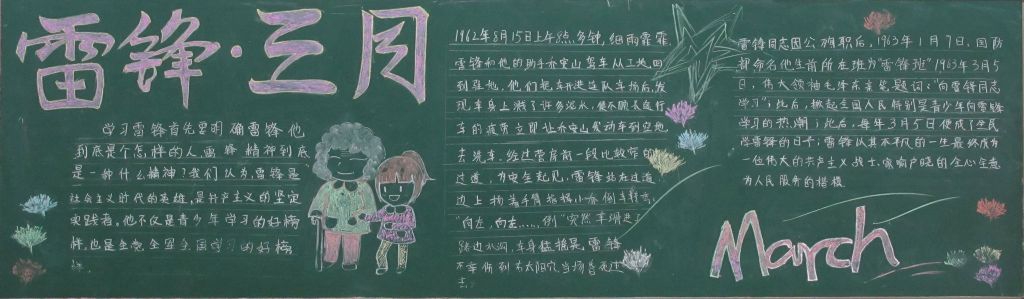 雷锋·三月
学习雷锋首先要明确雷锋他
到底是个怎样的人,雷锋精神到底
是一种什么精神?我们认为,雷锋是
社会主义时代的英雄,是共产主义的坚定
实践者。他不仅是青少年学习的好榜
样,也是全党全军全国学习的好榜
样.
1962年8月15日上午8点多钟,细雨霏霏,
雷锋和他的助手乔安山驾车从工地回
到驻地。他们把车开进连队车场后,发
现车身上溅了许多泥水,便不顾长途行
车的疲劳立即让乔安山发动车到空地
去洗车.经过营房前一段比较窄的
过道,为安全起见,雷锋站在过道
边上扬着手臂指挥小乔倒车转弯:
"向左,向左……倒"突然车湖进了
路边水沟,车身猛摇晃,雷锋
太阳穴当场
雷锋同志因公殉职后,1963年1月7日,国防
部命名他生前所在班为"雷锋班"1963年3月5
日,伟大领袖毛泽东亲笔题词:"向雷锋同志
学习";此后,掀起全国人民特别是青少年向雷锋
学习的热潮;此后,每年3月5日便成了全民
学雷锋的日子,雷锋以其不平凡的一生最终成为
一位伟大的共产主义战士,家喻户晓的全心全意
为人民服务的楷模.
March